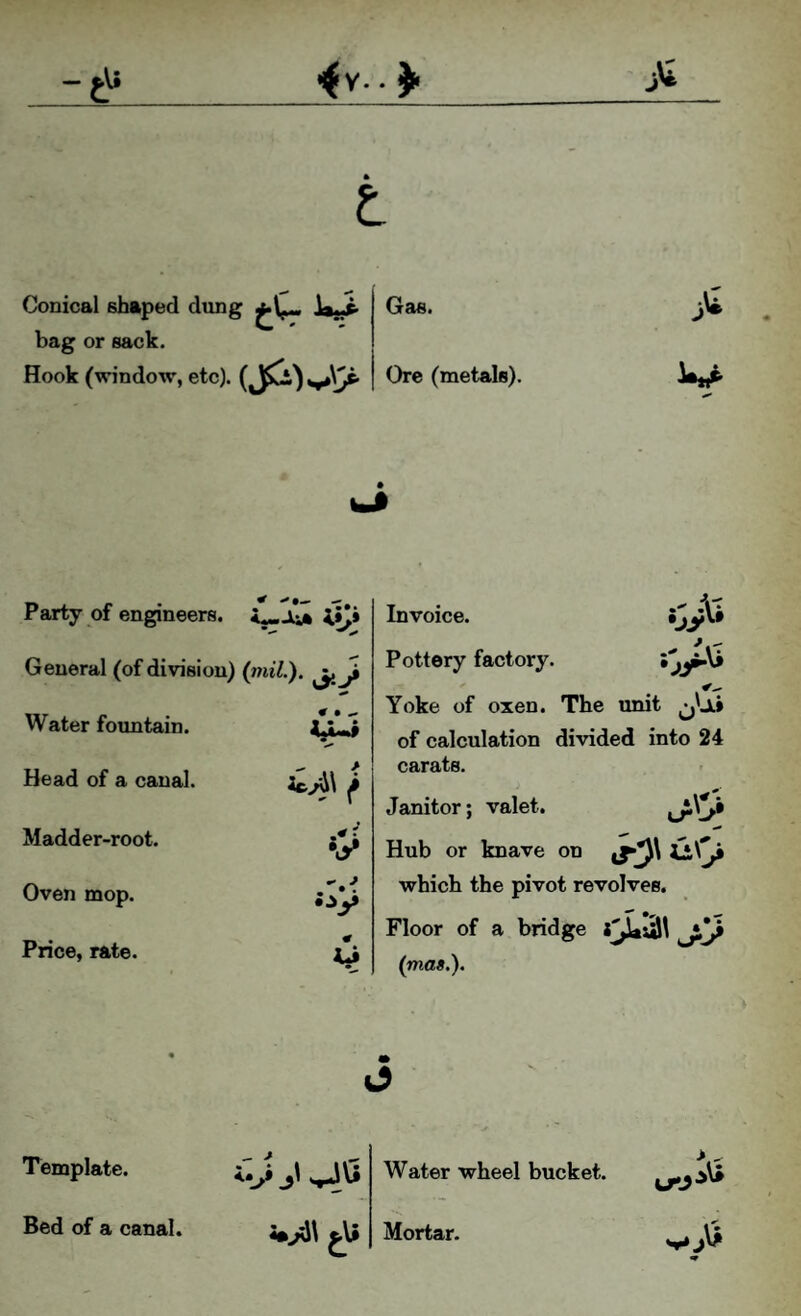 - قاع ﴿٢٠٠﴾ غاز
غ
Gas. غاز
Ore (metals). غبيط
Conical shaped dung غبيط سباخ
bag or sack.
Hook (window, etc). غراب (شنكل)
ف
Invoice. فاتورة
Pottery factory. فاخورة
Yoke of oxen. The unit فدان
of calculation divided into 24
carats.
Janitor; valet. فراش
Hub or knave on فراشة
which the pivot revolves.
Floor of a bridge فرش القنطرة
(mas.).
Party of engineers. فرقة هندسية
General (of division) (mil.). فريق
Water fountain. فسقية
Head of a canal. فم الترعة
Madder-root. فوة
Oven mop. فودة
Price, rate. فية
ق
Water wheel bucket. قادوس
Mortar.
Template. قالب او فرمة
Bed of a canal. قاع الترعة